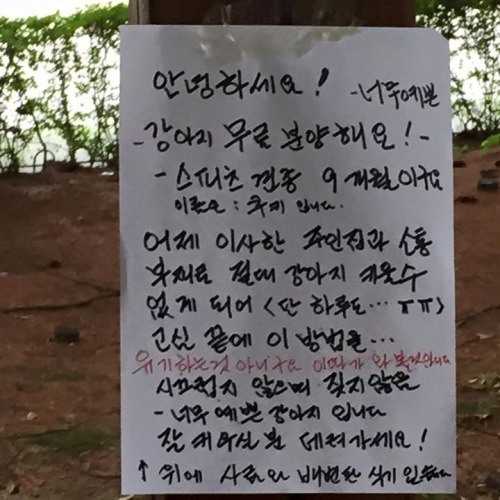 안녕하세요!
-너무예쁜
-강아지 무료 분양해요!-
- 스피츠 견종 9개월이구요
이름은 : 입니다.
어제 이사한 주인집과 소통
부재로 절대 강아지 키울수
없게 되어 <단 하루도... ㅠㅠ>
고심 끝에 이 방법을...
유기하는것 아니구요 이따가 와 볼것입니다
시끄럽지 않으며 짖지않은
- 너무 예쁜 강아지 입니다
잘 키우실 분 데려가세요!
↑ 위에 사료와 배변판 식기 있습니다